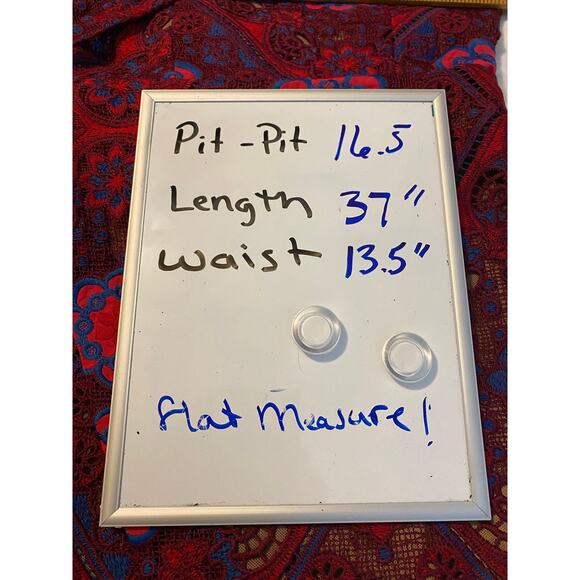 Pit-Pit 16.5
Length 37"
Waist 13.5"
flat Measure!